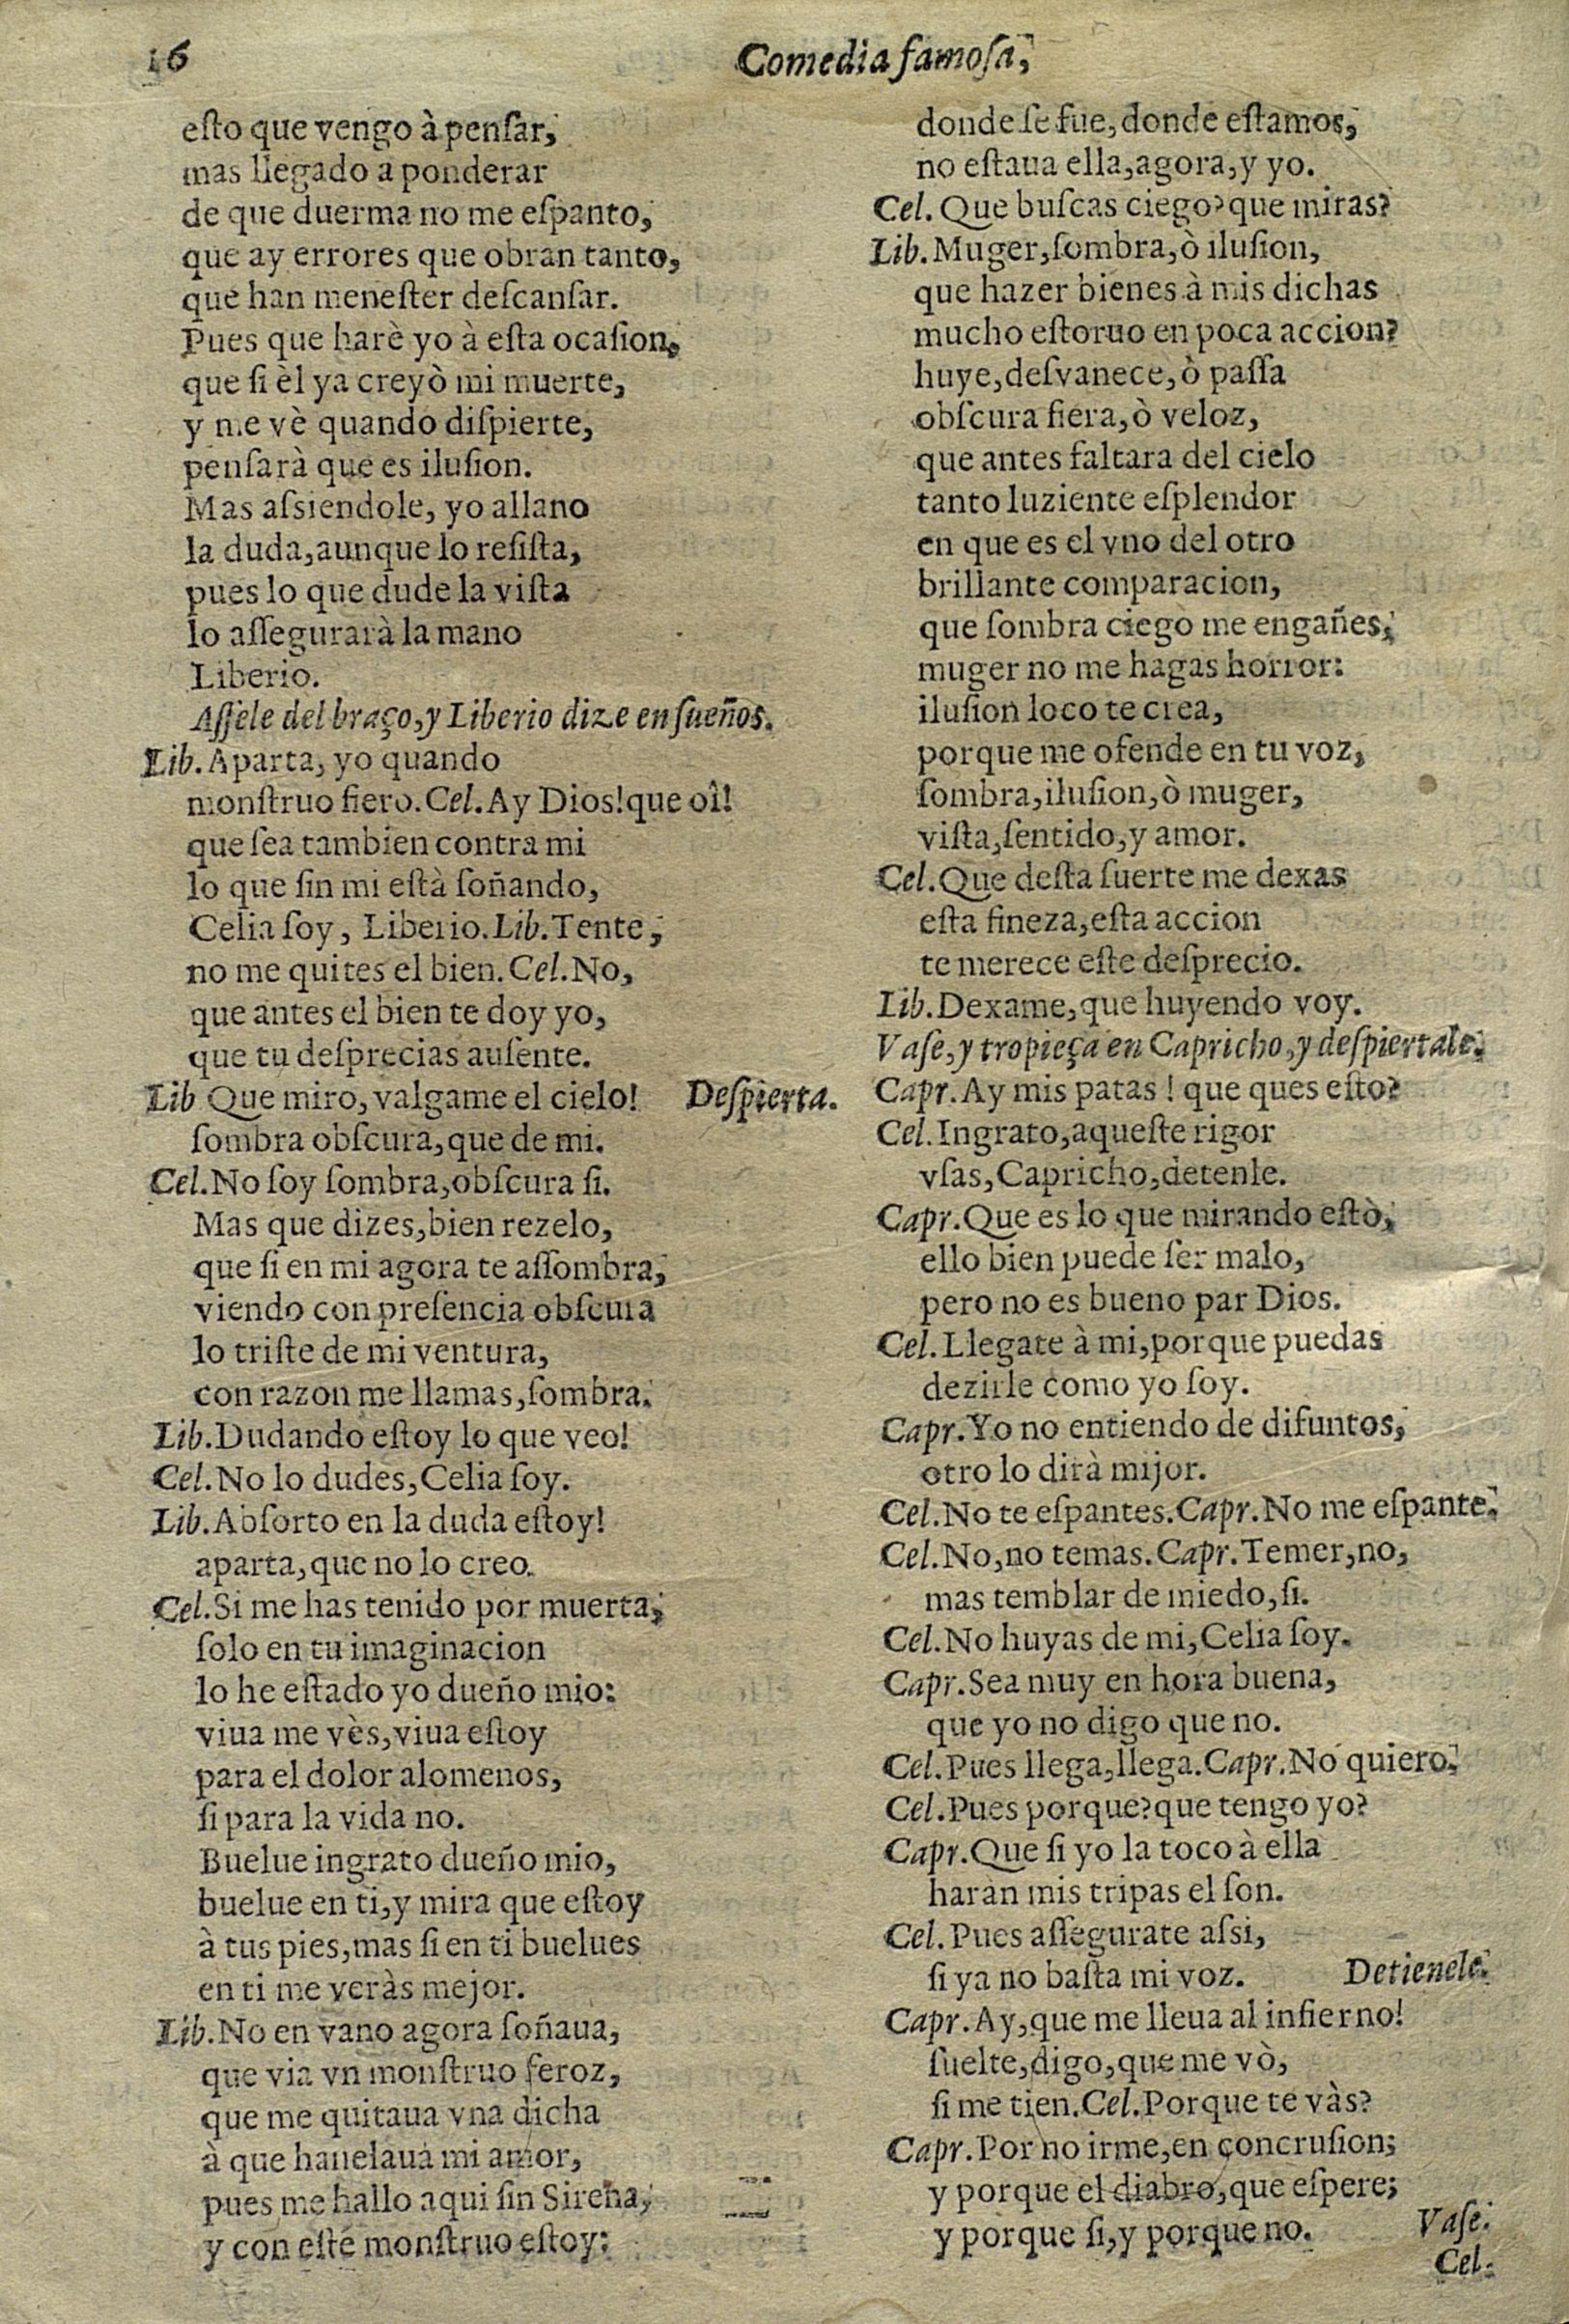 16
Comedia famosa,
esto que vengo à pensar,
mas llegado a ponderar
de que duerma no me espanto,
que ay errores que obran tanto,
que han menester descansar.
Pues que harè yo à esta ocasion,
que si èl ya creyò mi muerte,
y me vè quando dispierte,
pensarà que es ilusion.
Mas assiendole, yo allano
la duda, aunque lo resista,
pues lo que dude la vista
lo assegurarà la mano
Liberio.
Assele del braço, y Liberio dize en sueños.
Lib. Aparta, yo quando
monstruo fiero. Cel. Ay Dios! que oì!
que sea tambien contra mi
lo que sin mi està soñando,
Celia soy, Liberio. Lib. Tente,
no me quites el bien. Cel. No,
que antes el bien te doy yo,
que tu desprecias ausente.
Lib Que miro, valgame el cielo! Despierta.
sombra obscura, que de mi.
Cel. No soy sombra, obscura si.
Mas que dizes, bien rezelo,
que si en mi agora te assombra,
viendo con presencia obscura
lo triste de mi ventura,
con razon me llamas, sombra.
Lib. Dudando estoy lo que veo!
Cel. No lo dudes, Celia soy.
Lib. Absorto en la duda estoy!
aparta, que no lo creo.
Cel. Si me has tenido por muerta,
solo en tu imaginacion
lo he estado yo dueño mio:
viua me vès, viua estoy
para el dolor alomenos,
si para la vida no.
Buelue ingrato dueño mio,
buelue en ti, y mira que estoy
à tus pies, mas si en ti buelues
en ti me veràs mejor.
Lib. No en vano agora soñaua,
que via vn monstruo feroz,
que me quitaua vna dicha
à que hanelaua mi amor,
pues me hallo aqui sin Sirena,
y con este monstruo estoy:
donde se fue, donde estamos,
no estaua ella, agora, y yo.
Cel. Que buscas ciego? que miras?
Lib. Muger, sombra, ò ilusion,
que hazer bienes à mis dichas
mucho estoruo en poca accion?
huye, desvanece, ò passa
obscura fiera, ò veloz,
que antes faltara del cielo
tanto luziente esplendor
en que es el vno del otro
brillante comparacion,
que sombra ciego me engañes,
muger no me hagas horror:
ilusion loco te crea,
porque me ofende en tu voz,
sombra, ilusion, ò muger,
vista, sentido, y amor.
Cel. Que desta suerte me dexas
esta fineza, esta accion
te merece este desprecio.
Lib. Dexame, que huyendo voy.
Vase, y tropieça en Capricho, y despiertale.
Capr. Ay mis patas! que ques esto?
Cel. Ingrato, aqueste rigor
vsas, Capricho, detenle.
Capr. Que es lo que mirando estò,
ello bien puede ser malo,
pero no es bueno par Dios.
Cel. Llegate à mi, porque puedas
dezirle como yo soy.
Capr. Yo no entiendo de difuntos,
otro lo dirà mijor.
Cel. No te espantes. Capr. No me espante.
Cel. No, no temas. Capr. Temer, no,
mas temblar de miedo, si.
Cel. No huyas de mi, Celia soy.
Capr. Sea muy en hora buena,
que yo no digo que no.
Cel. Pues llega, llega. Capr. No quiero.
Cel. Pues porque? que tengo yo?
Capr. Que si yo la toco à ella
haràn mis tripas el son.
Cel. Pues assegurate assi,
si ya no basta mi voz. Detienele.
Capr. Ay, que me lleua al infierno!
suelte, digo, que me vò,
si me tien. Cel. Porque te vàs?
Capr. Por no irme, en concrusion;
y porque el diabro, que espere;
y porque si, y porque no. Vase.
Cel.